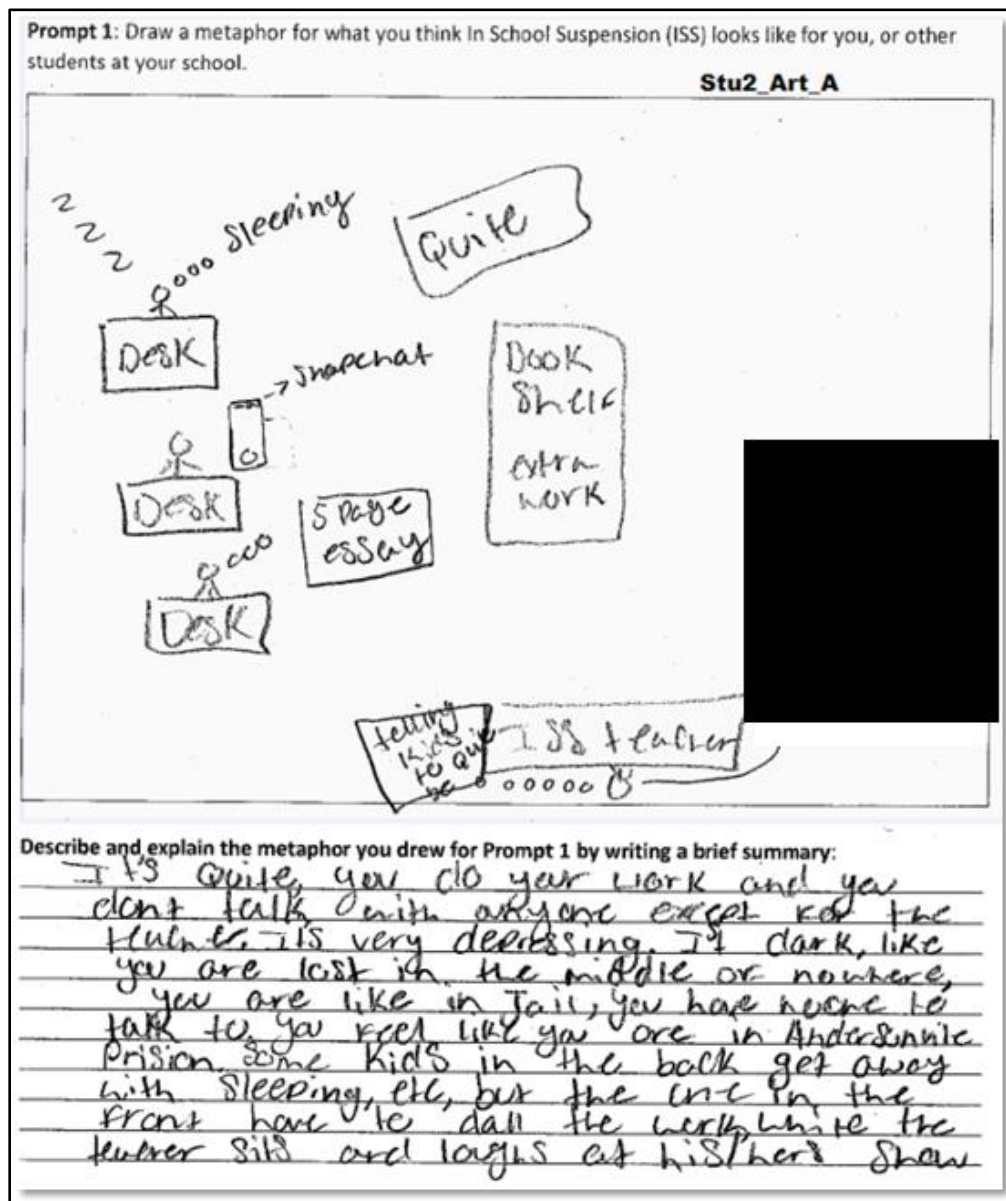 Prompt 1: Draw a metaphor for what you think In School Suspension (ISS) looks like for you, or other
students at your school.
Stu2_Art_A
z
z
z
Sleeping
Quite
Desk
Snapchat
Book
Shelf
extra
work
Desk
5 Page
essay
Desk
telling
kids
to Quit
be
ISS teacher
Describe and explain the metaphor you drew for Prompt 1 by writing a brief summary:
It's Quite, you do your work and you
dont talk with anyone except for the
its very depressing. It dark, like
you are lost in the middle of nowhere,
you are like in Jail, you have noone to
talk to, you feel like you are in
Prision some kids in the back get away
with Sleeping, etc, but the one in the
front have to the work, the
sits and laughs at his/hers show